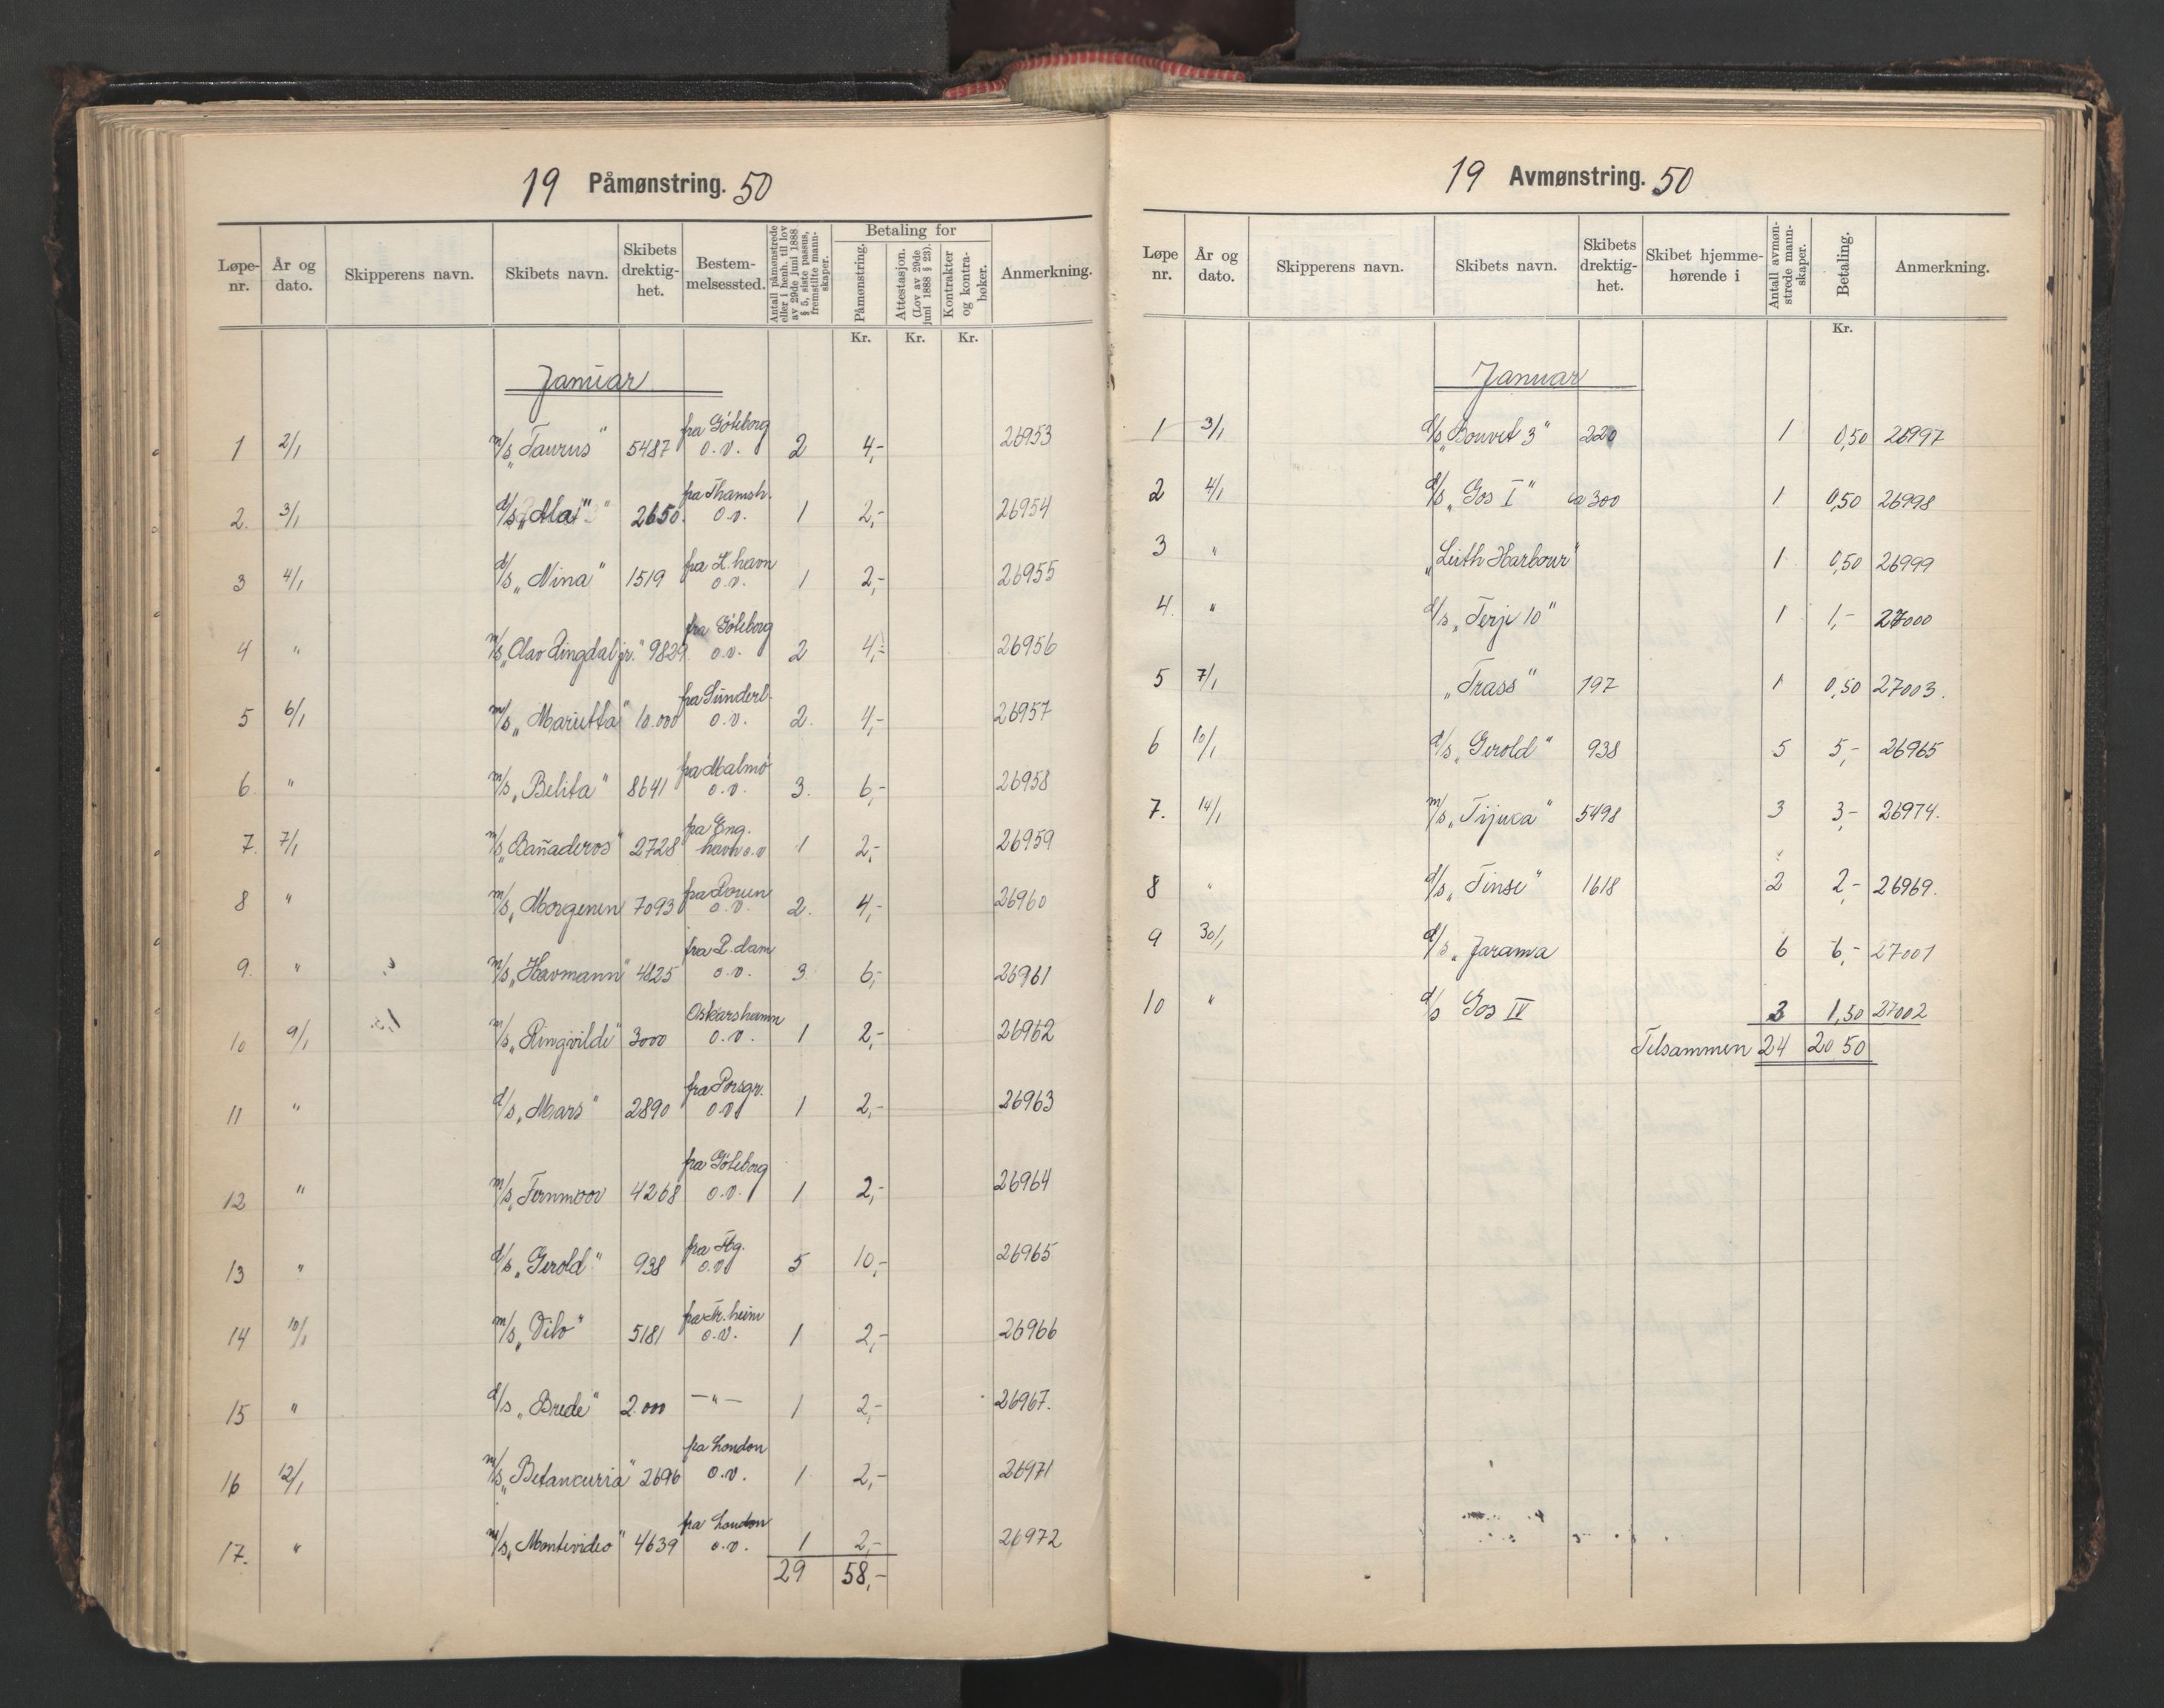 19 Påmønstring. 50
Løpe-nr. År og dato. Skipperens navn. Skibets navn. Skibets drektig-het. Bestem-melsessted. Antall påmønstrede eller i henh. til lov av 29de juni 1888 § 5, siste passus, fremstilte mann-skaper. Betaling for Påmønstring. Attestasjon. (Lov av 29de juni 1888 § 23). Kontrakter og kontra-bøker. Anmerkning.
Kr. Kr. Kr.
Januar
1 2/1 m/s „Taurus" 5487 fra Göteborg o.v. 2 4,- 26953
2. 3/1 d/s „Mai" 2650 fra Thamsh. o.v. 1 2,- 26954
3 4/1 d/s „Nina" 1519 fra K.havn o.v. 1 2,- 26955
4 " m/s „Olav Ringdal jr." 9829 fra Göteborg o.v. 2 4,- 26956
5 6/1 m/s „Marietta" 10.000 fra Sunderl. o.v. 2. 4,- 26957
6 " m/s „Belita" 8641 fra Malmö o.v. 3. 6,- 26958
7. 7/1 m/s „Bañaderos" 2728 fra Eng. havn o.v 1 2,- 26959
8 " m/s „Morgenen 7093 fra Rouen o.v. 2. 4,- 26960
9. " m/s „Havmann" 4825 fra R.dam o.v. 3 6,- 26961
10 9/1 m/s „Ringvilde" 3000 Oskarshamn o.v. 1 2,- 26962
11 " d/s „Mars" 2890 fra Porsgr. o.v. 1 2,- 26963
12 " m/s „Fernmoor 4268 fra Göteborg o.v. 1 2,- 26964
13 " d/s „Gerold" 938 fra o.v. 5 10,- 26965
14 10/1 m/s „Vilo" 5181 fra Tr.heim o.v. 1 2,- 26966
15 " d/s „Brede" 2.000 —"— 1 2,- 26967.
16 12/1 m/s „Betancuria" 2696 fra London o.v. 1 2,- 26971
17. " m/s „Montevideo" 4639 fra London o.v. 1 2,- 26972
29 58,-
19 Avmønstring. 50
Løpe nr. År og dato. Skipperens navn. Skibets navn. Skibets drektig-het. Skibet hjemme-hørende i Antall avmøn-strede mann-skaper. Betaling. Anmerkning.
Kr.
Januar
1 3/1 d/s „Bouvet 3" 220 1 0,50 26997
2 4/1 d/s „Gos I" ca 300 1 0,50 26998
3 " „Leith Harbour" 1 0,50 26999
4. " d/s „Terje 10" 1 1,- 27000
5 7/1 „Trass" 197 1 0,50 27003.
6 10/1 d/s „Gerold" 938 5 5,- 26965
7. 14/1 m/s „Tijuca" 5498 3 3,- 26974.
8 " d/s „Finse" 1618 2 2,- 26969.
9 30/1 d/s „Jarama 6 6,- 27001
10 " d/s Gos IV 3 1,50 27002
Tilsammen 24 20 50